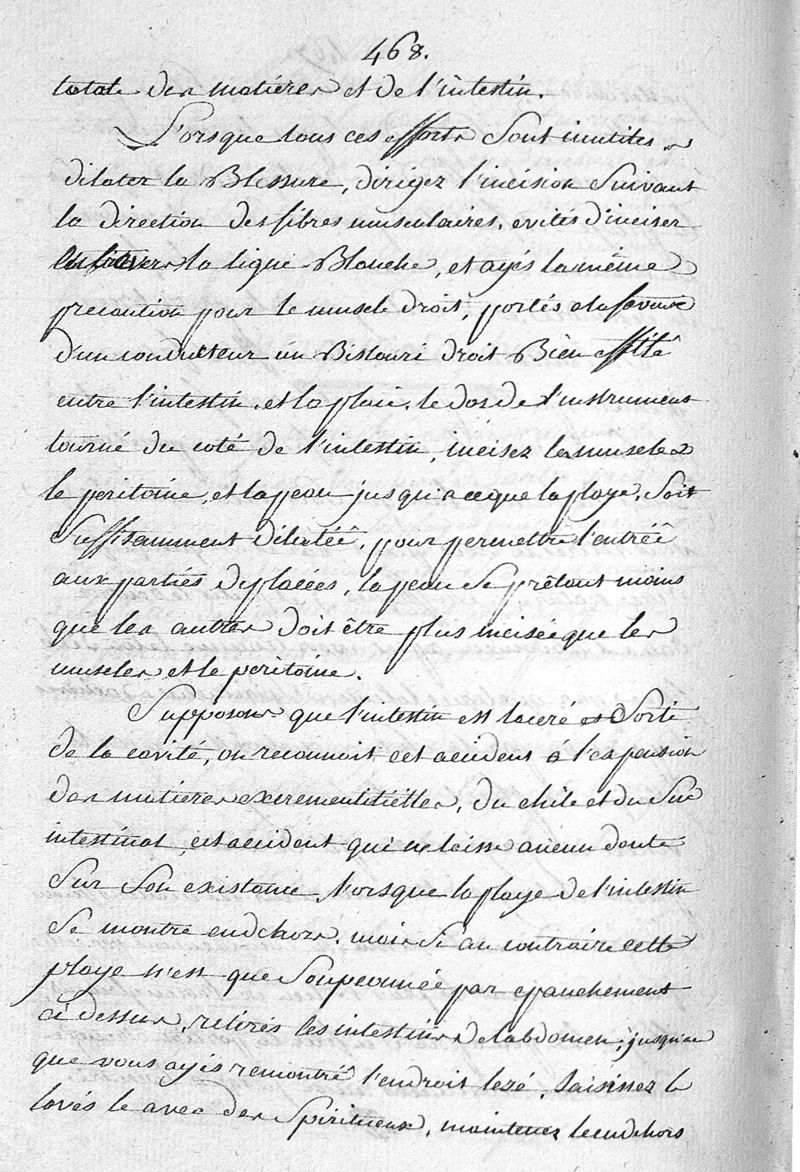 468.
totale des matieres et de l'intestin.
Lorsque tous ces efforts sont inutiles,
dilater la Blessure, dirigez l'incision suivant
la direction des fibres musculaires, evités d'inciser
en travers la ligne Blanche, et ayés la même
precaution pour le muscle droit, portés a la faveur
d'un conducteur un Bistouri droit Bien effilé
entre l'intestin, et la plaie, le dos de l'instrument
tourné du coté de l'intestin, incisez les muscles
le peritoine, et la peau jusqu'a ceque la playe, soit
suffisamment dilatéê, pour permettre l'entréê
aux partiés deplacées, la peau se prêtant moins
que les autres doit être plus inciséé que les
muscles et le peritoine.
Supposons que l'intestin est laceré et sorti
de la cavité, on reconnoit cet accident á l'expansion
des matieres excrementitielles, du chile et du suc
intestinal, cet accident qui ne laisse aucun doute
sur son existance, lorsque la playe de l'intestin
se montre endehors, mais si au contraire cette
playe n'est que soupconnéé par epanchement
ci dessus, retirés les intestins de labdomen, jusqu'a
que vous ayés remontré l'endroit lezé, saisissez le
lavés le avec des spiritueux, maintenez le endehors